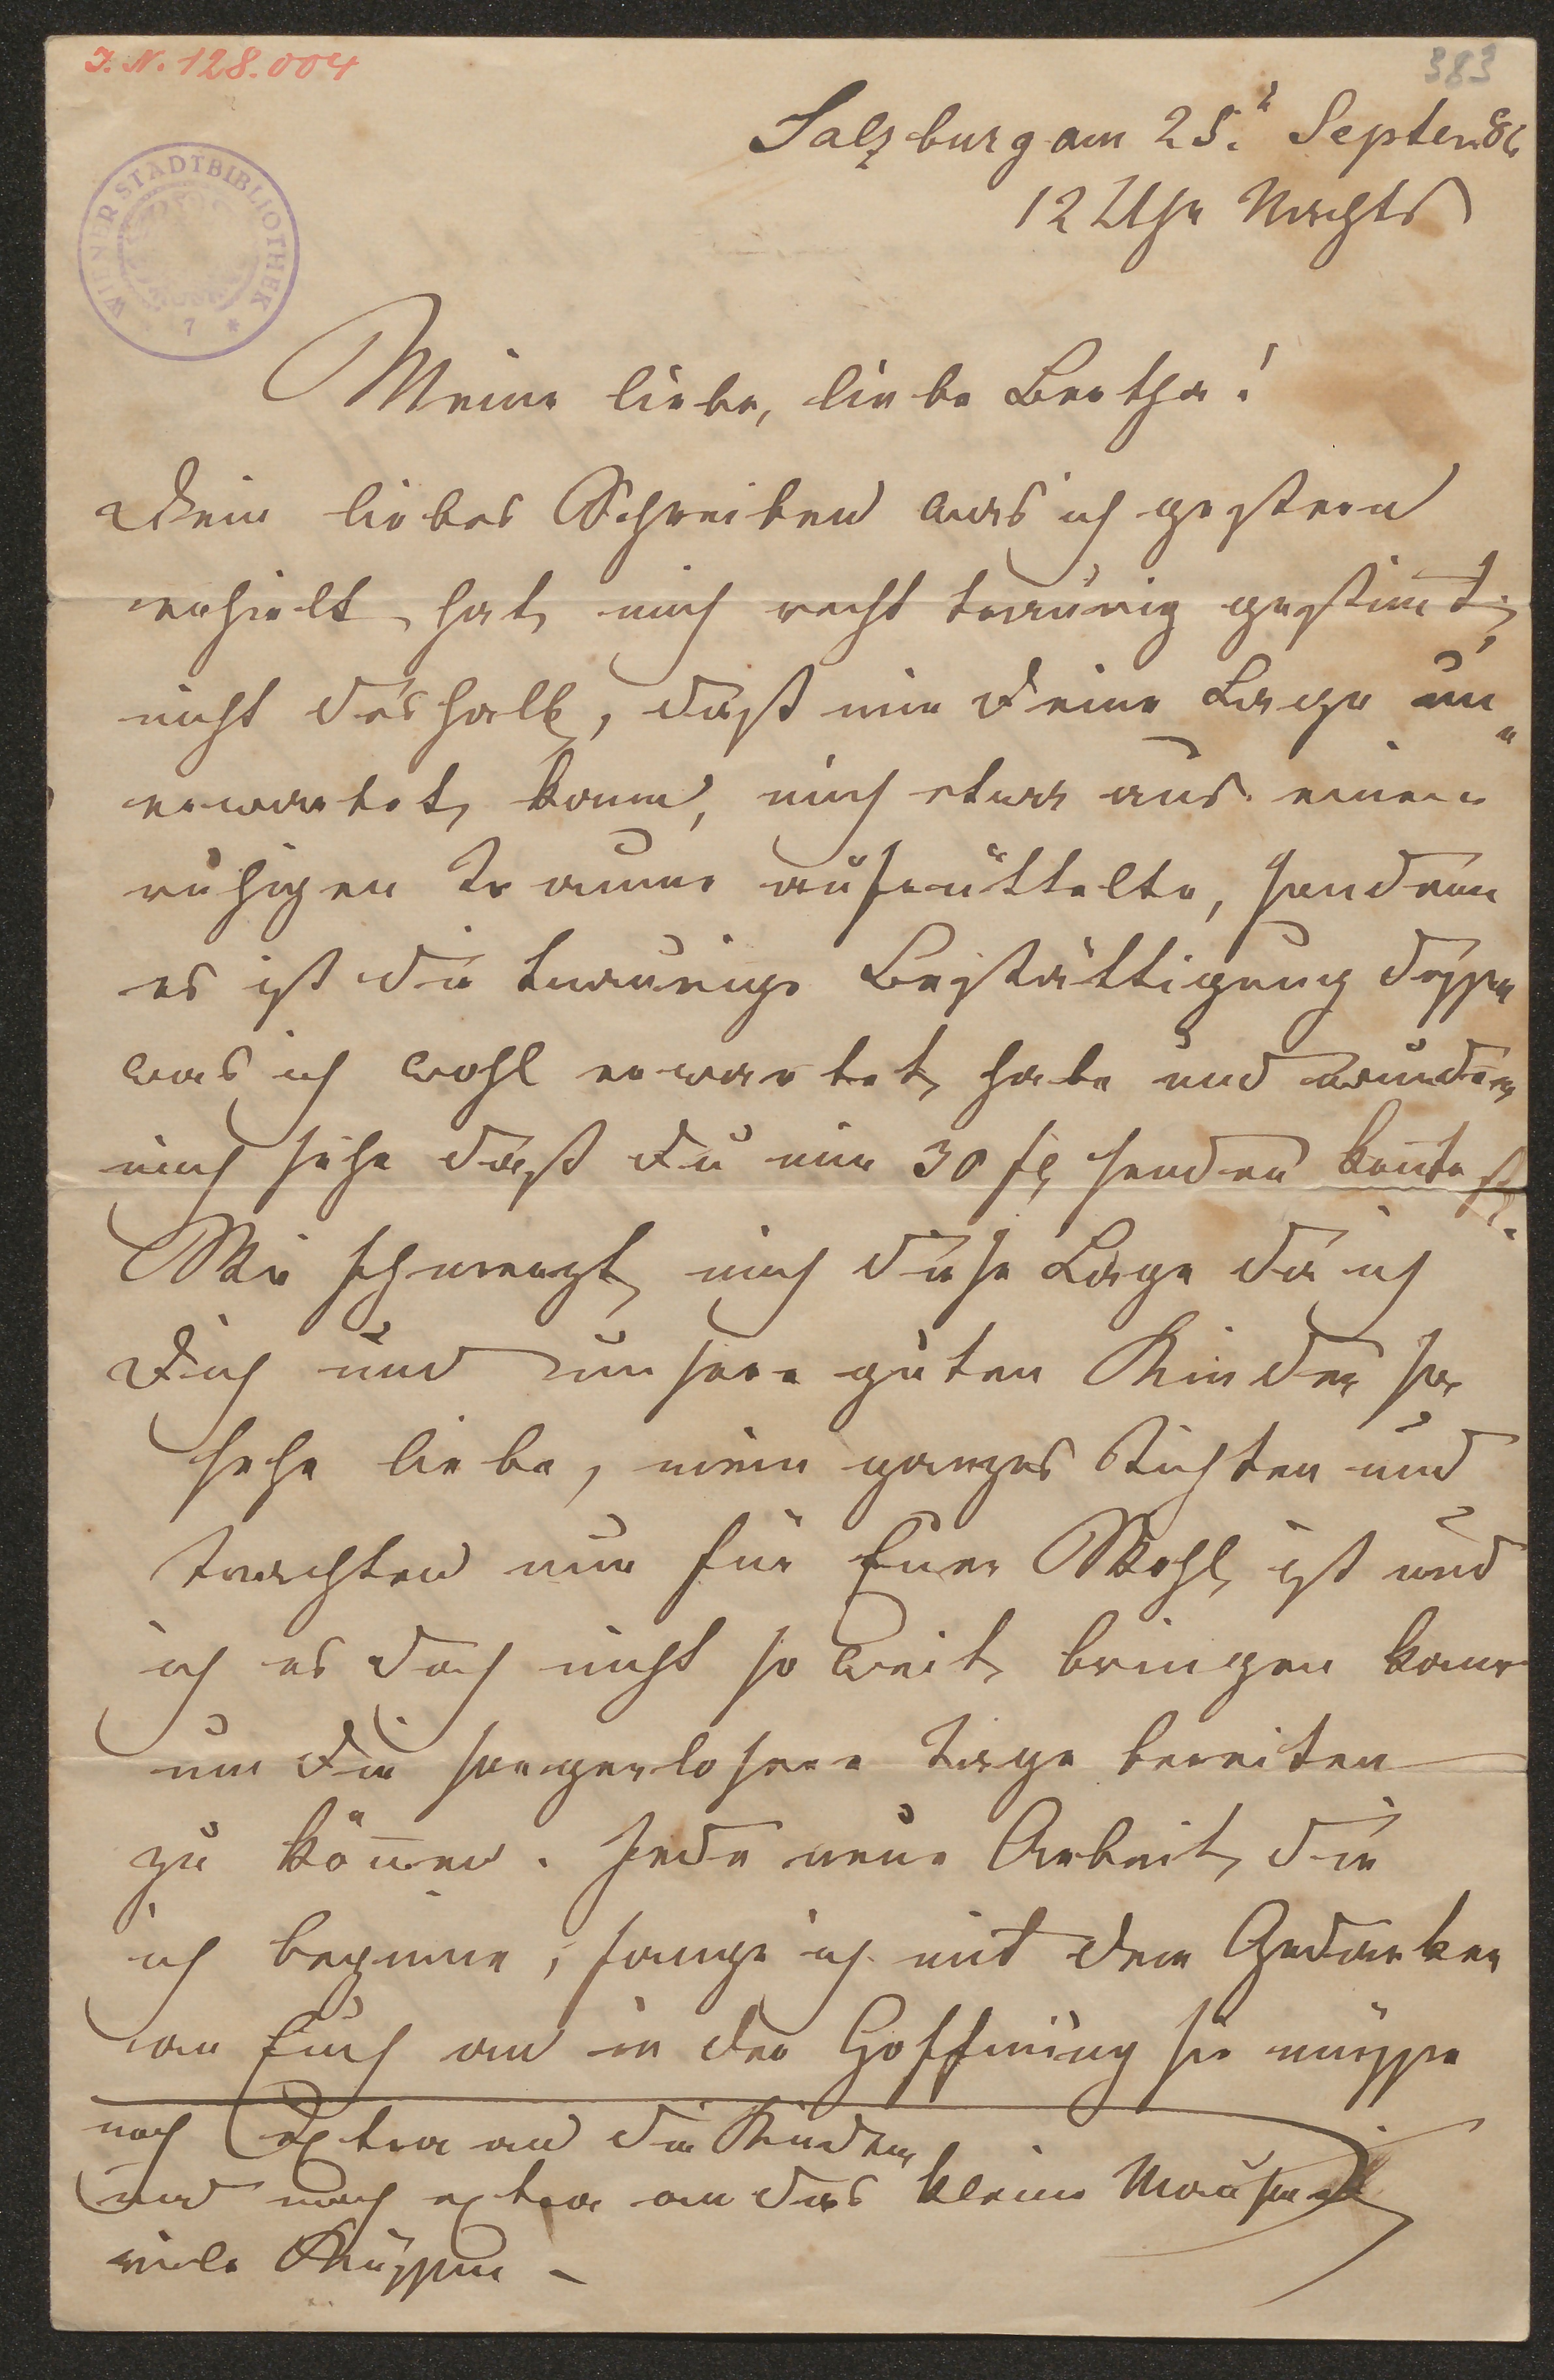 J. N. 128.004
383
WIENER STADTBIBLIOTHEK
7 *
Salzburg am 25. Septem. 86
12 Uhr Nachts
Meine liebe, liebe Bertha!
Dein liebes Schreiben was ich gestern
erhielt, hat mich recht traurig gestim̄t,
nicht deshalb, daß mir Deine Lage un„
erwartet kam, mich etwa aus einem
ruhigen Traume aufrüttelte, sondern
es ist die traurige Bestättigung dessen
was ich wohl erwartet habe und wundere
mich sehr daß Du mir 30 fl senden kon̄test.
Wie schmerzt mich diese Lage da ich
Dich und unsere guten Kinder so
sehr liebe, mein ganzes Tichten und
trachten nur für Euer Wohl ist und
ich es doch nicht so weit bringen kann
um Dir sorgenlosere Tage bereiten
zu kön̄en. Jede neue Arbeit die
ich beginne, fange ich mit dem Gedanken
an Euch an in der Hoffnung sie müsse
noch Extra an die Kinder
und noch extra an das kleine Mauserl
viele Küssen –